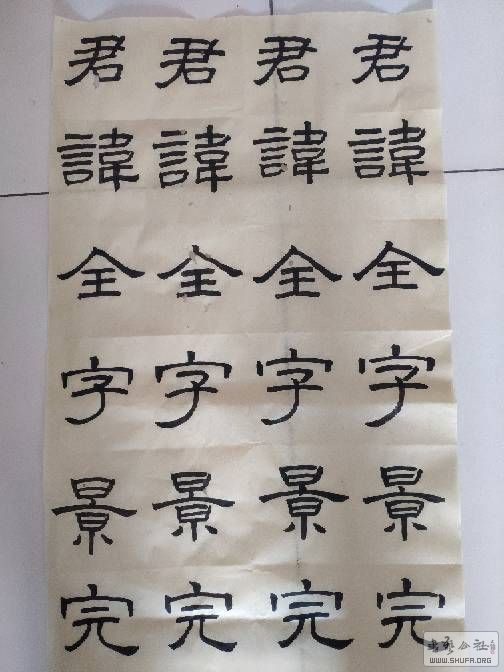 君 君 君 君
諱 諱 諱 諱
全 全 全 全
字 字 字 字
景 景 景 景
完 完 完 完
书艺公社
WWW.SHUFA.ORG